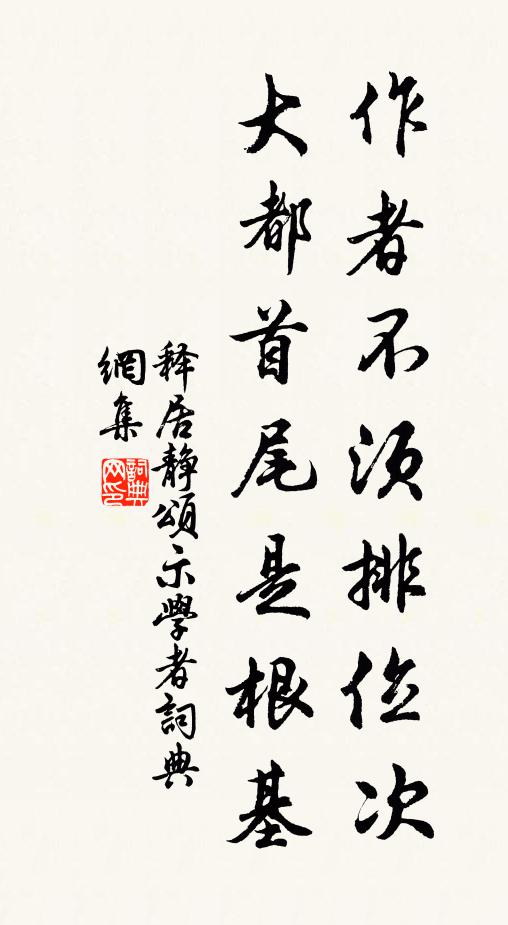 作者不须排位次
大都首尾是根基
释居静頌示學者詞典
網集
詞典
网印